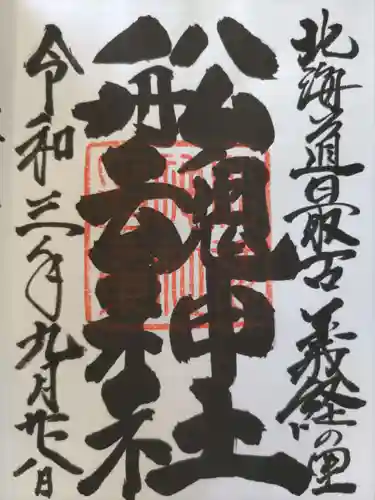 北海道最古 義経の里
船魂神社
令和三年九月廿八日